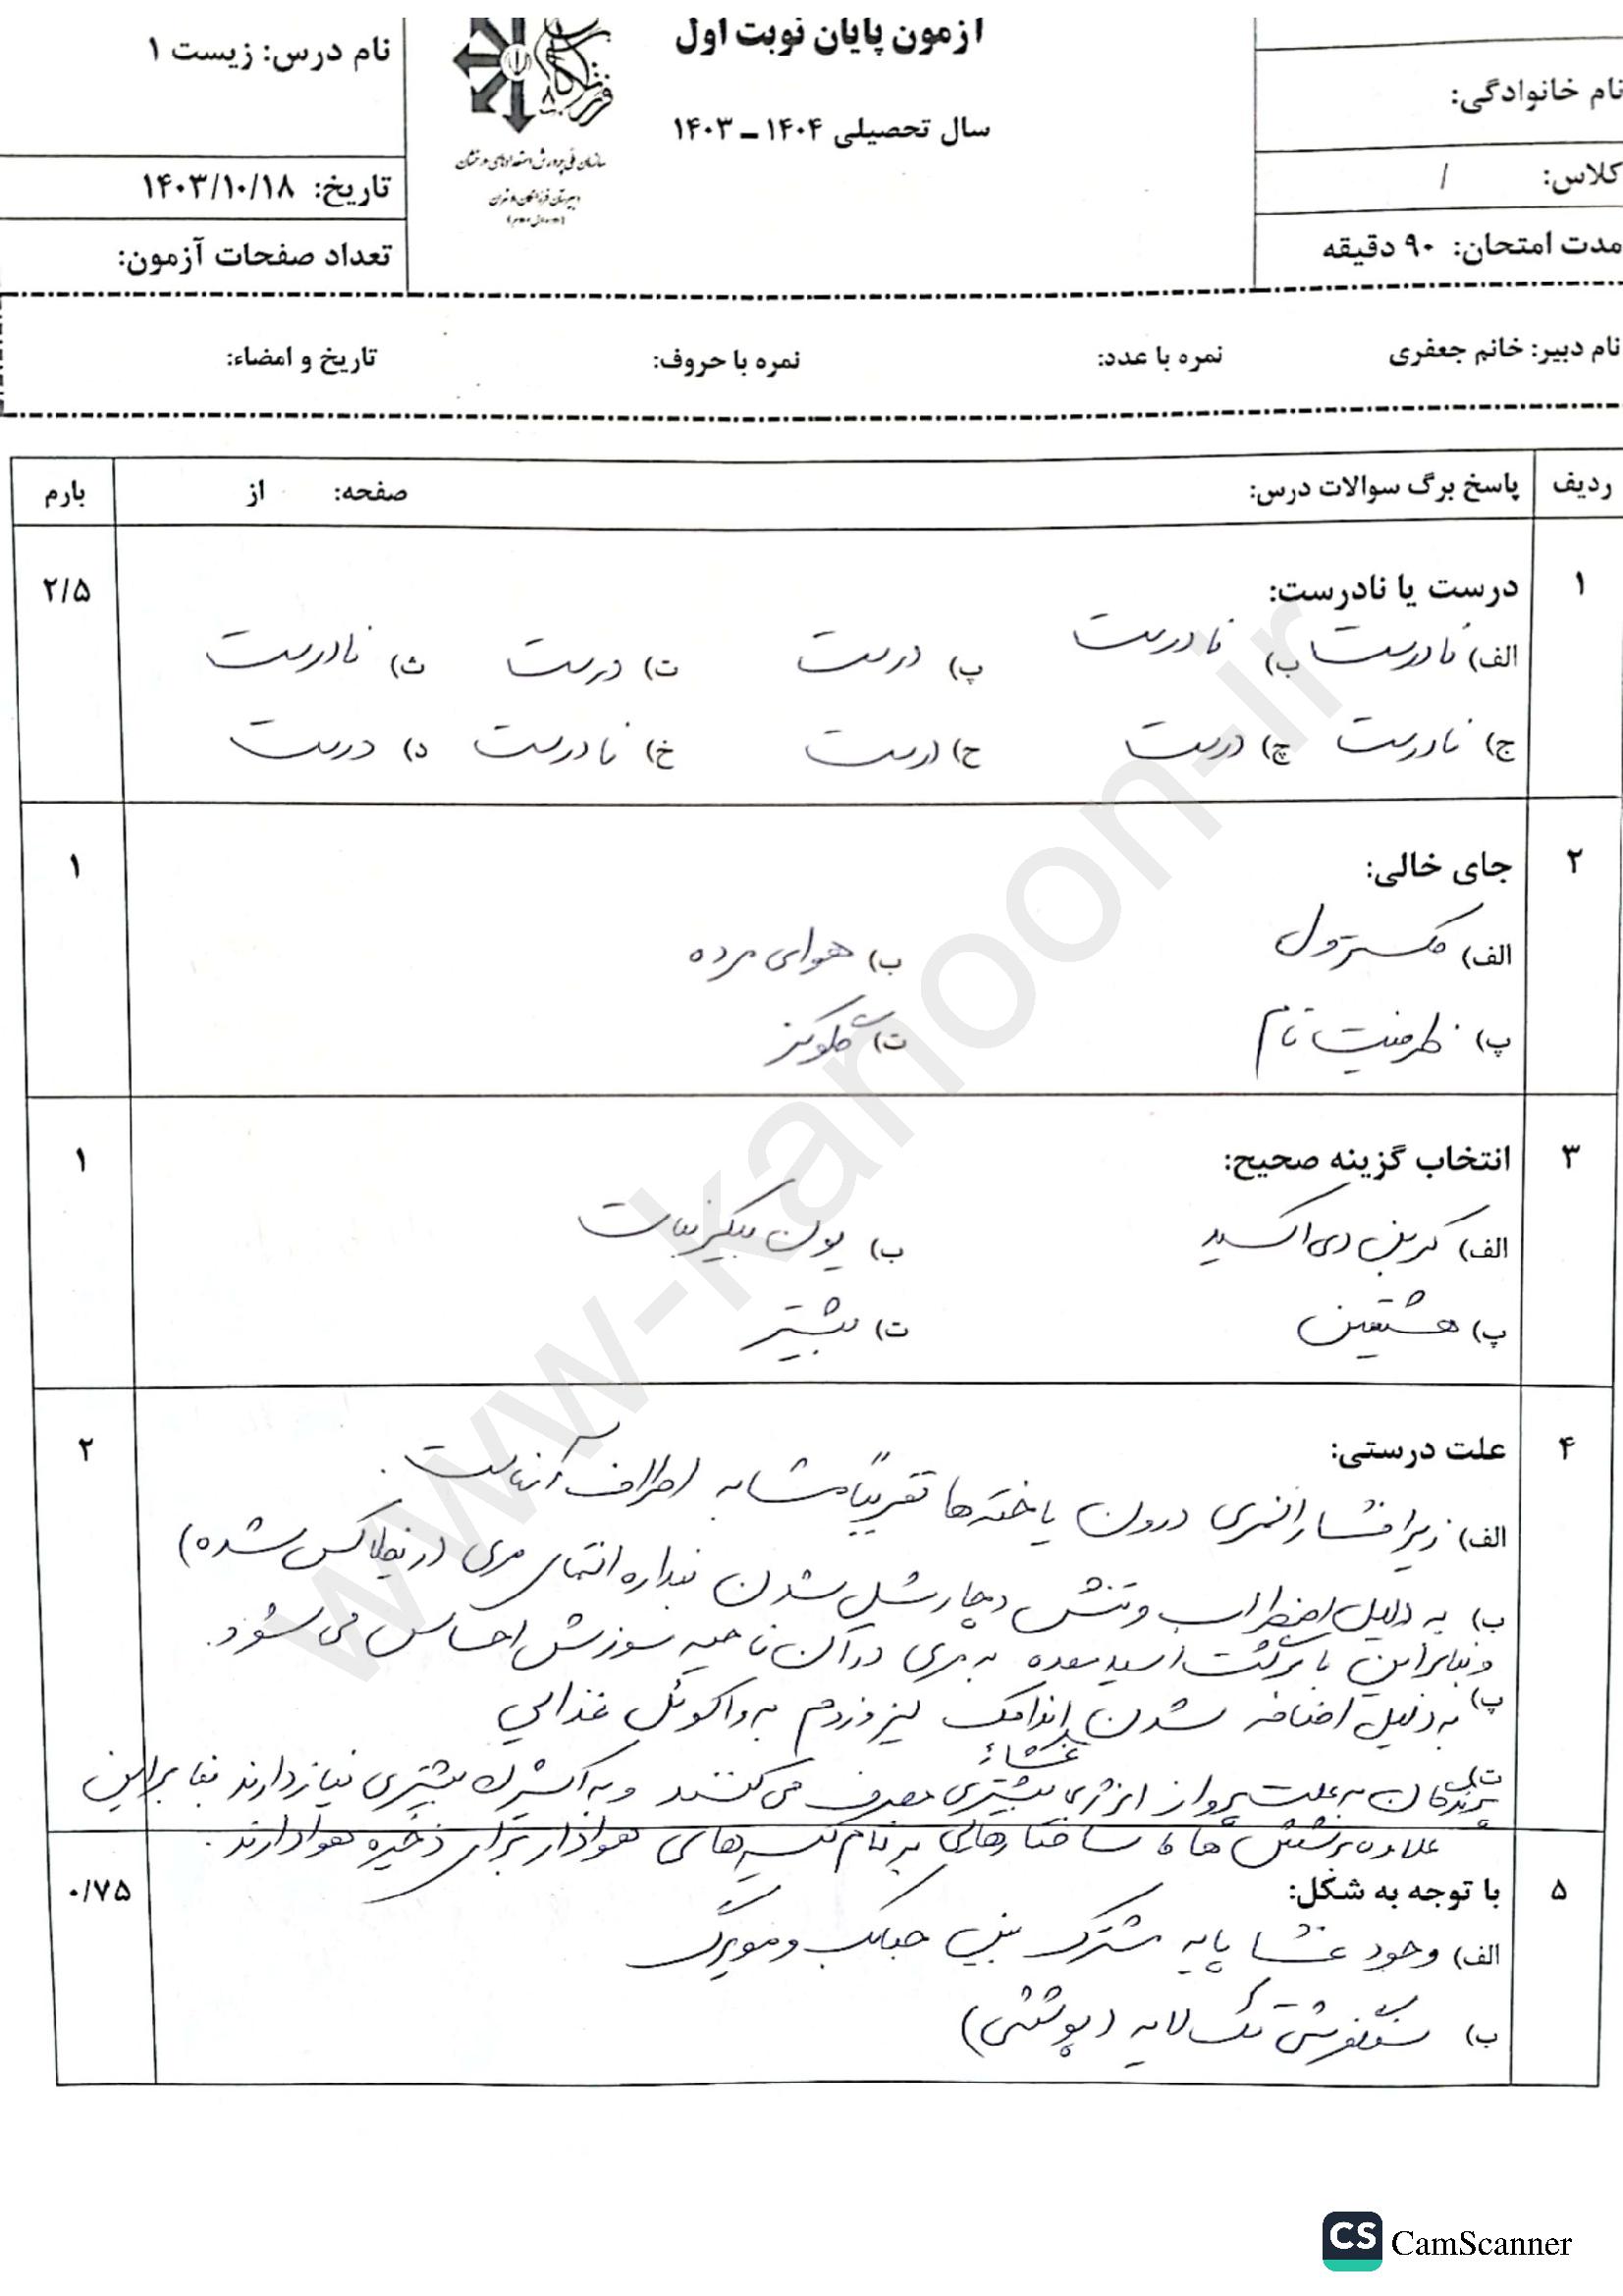 آزمون پایان نوبت اول
سال تحصیلی ۱۴۰۴ – ۱۴۰۳
نام خانوادگی:
کلاس: /
مدت امتحان: ۹۰ دقیقه
سازمان ملی پرورش استعدادهای درخشان
نام درس: زیست ۱
تاریخ: ۱۴۰۳/۱۰/۱۸
تعداد صفحات آزمون:
نام دبیر: خانم جعفری نمره با عدد: نمره با حروف: تاریخ و امضاء:
ردیف پاسخ برگ سوالات درس: صفحه: از بارم
۱ درست یا نادرست: ۲/۵
الف) نادرست ب) نادرست پ) درست ت) درست ث) نادرست
ج) نادرست چ) درست ح) درست خ) نادرست د) درست
۲ جای خالی: ۱
الف) کلسترول ب) هوای مرده
پ) ظرفیت تام ت) گلوکز
۳ انتخاب گزینه صحیح: ۱
الف) کربن دی اکسید ب) یون بیکربنات
پ) هشتمین ت) بیشتر
۴ علت درستی: ۲
الف) زیرا فشار اسمزی درون یاخته ها تقریباً مشابه اطراف آنهاست.
ب) به دلیل اضطراب و تنش دچار شل شدن بنداره انتهای مری (ریفلاکس شده)
و بنابراین با برگشت اسید معده به مری در آن ناحیه سوزش احساس می شود.
پ) به دلیل اضافه شدن غشاء اندامک لیزوزوم به واکوئل غذایی
ت) پرندگان به علت پرواز انرژی بیشتری مصرف می کنند و به اکسیژن بیشتری نیاز دارند بنابراین
علاوه بر شش ها، ساختارهایی به نام کیسه های هوادار برای ذخیره هوا دارند.
۵ با توجه به شکل: ۰/۷۵
الف) وجود غشا پایه مشترک بین حبابک و مویرگ
ب) سنگفرشی تک لایه (پوششی)
www-kanoon-ir
CS CamScanner